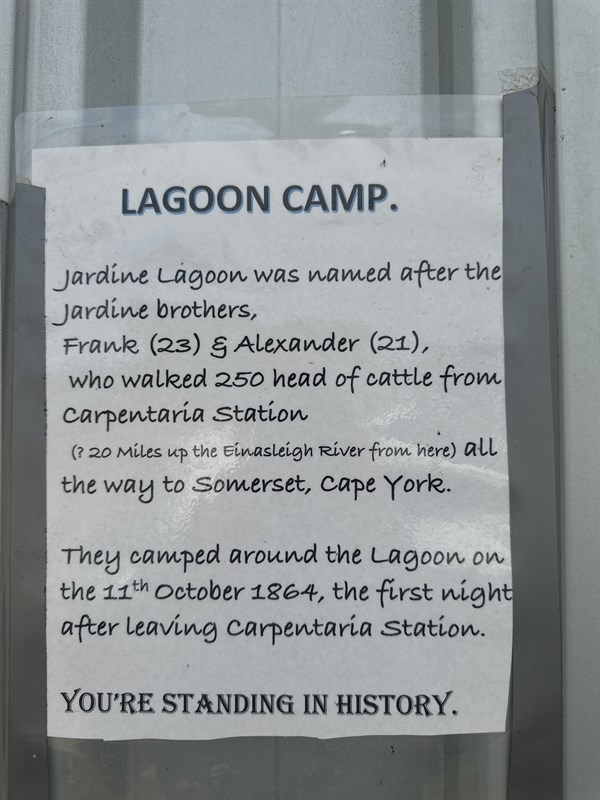 LAGOON CAMP.
Jardine Lagoon was named after the
Jardine brothers,
Frank (23) & Alexander (21),
who walked 250 head of cattle from
Carpentaria Station
(? 20 Miles up the Einasleigh River from here) all
the way to Somerset, Cape York.
They camped around the Lagoon on
the 11th October 1864, the first night
after leaving Carpentaria Station.
YOU'RE STANDING IN HISTORY.